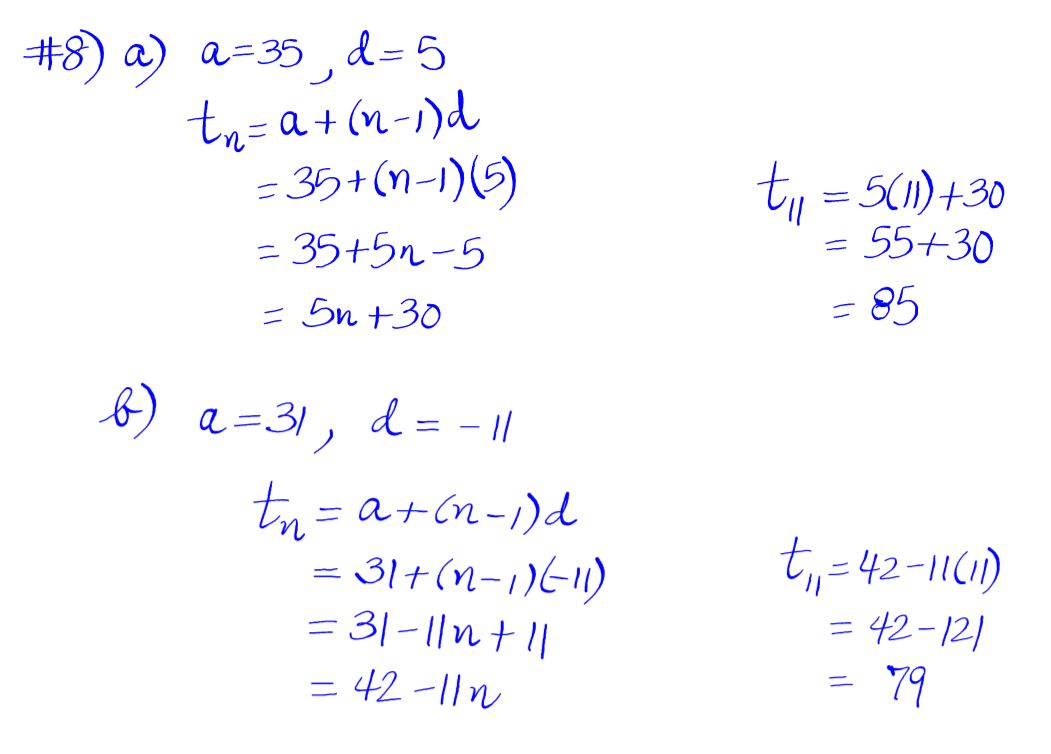 #8) a) a=35, d=5
tₙ = a+(n-1)d
= 35+(n-1)(5)
= 35+5n-5
= 5n+30
t₁₁ = 5(11)+30
= 55+30
= 85
b) a=31, d=-11
tₙ = a+(n-1)d
= 31+(n-1)(-11)
= 31-11n+11
= 42-11n
t₁₁ = 42-11(11)
= 42-121
= 79